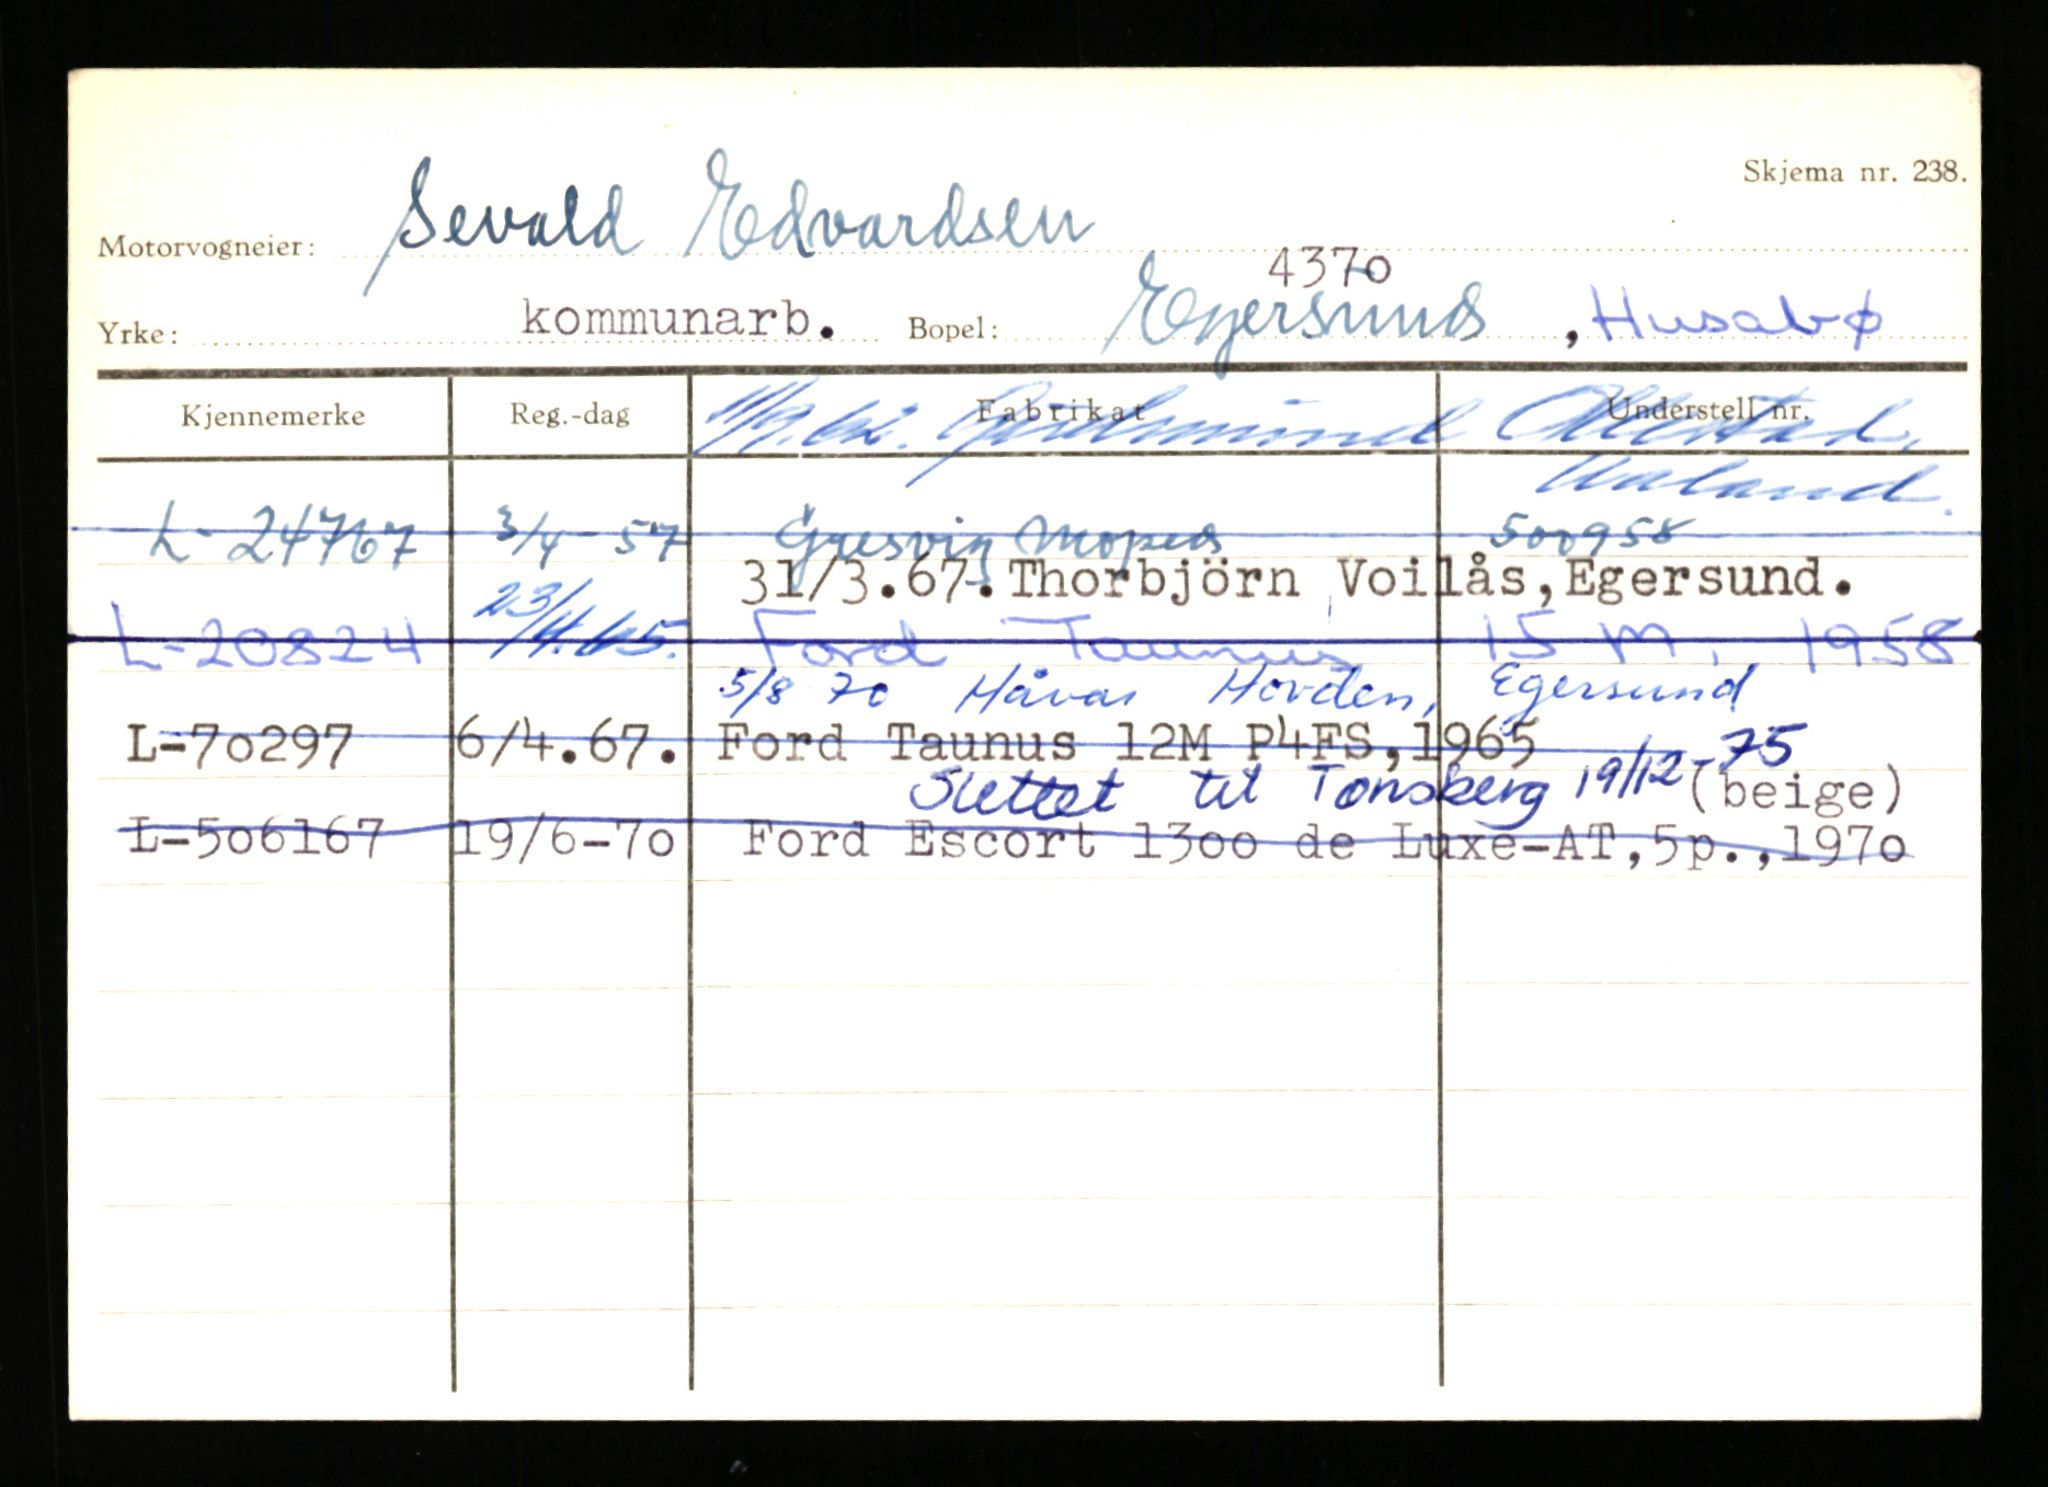 Skjema nr. 238.
Motorvogneier: Sevald Edvardsen
4370
Yrke: kommunarb. Bopel: Egersund , Husabø
Kjennemerke Reg.-dag Fabrikat Understell nr.
Ualand.
L-24767 3/4-57 Gresvig Moped 500958
31/3.67. Thorbjörn Voilås, Egersund.
L-20824 23/4.65. Ford Taunus 15 M, 1958
5/8 70 Håvar Hovden, Egersund
L-70297 6/4.67. Ford Taunus 12M P4FS,1965
Slettet til Tønsberg 19/12-75
(beige)
L-506167 19/6-70 Ford Escort 1300 de Luxe-AT,5p.,1970